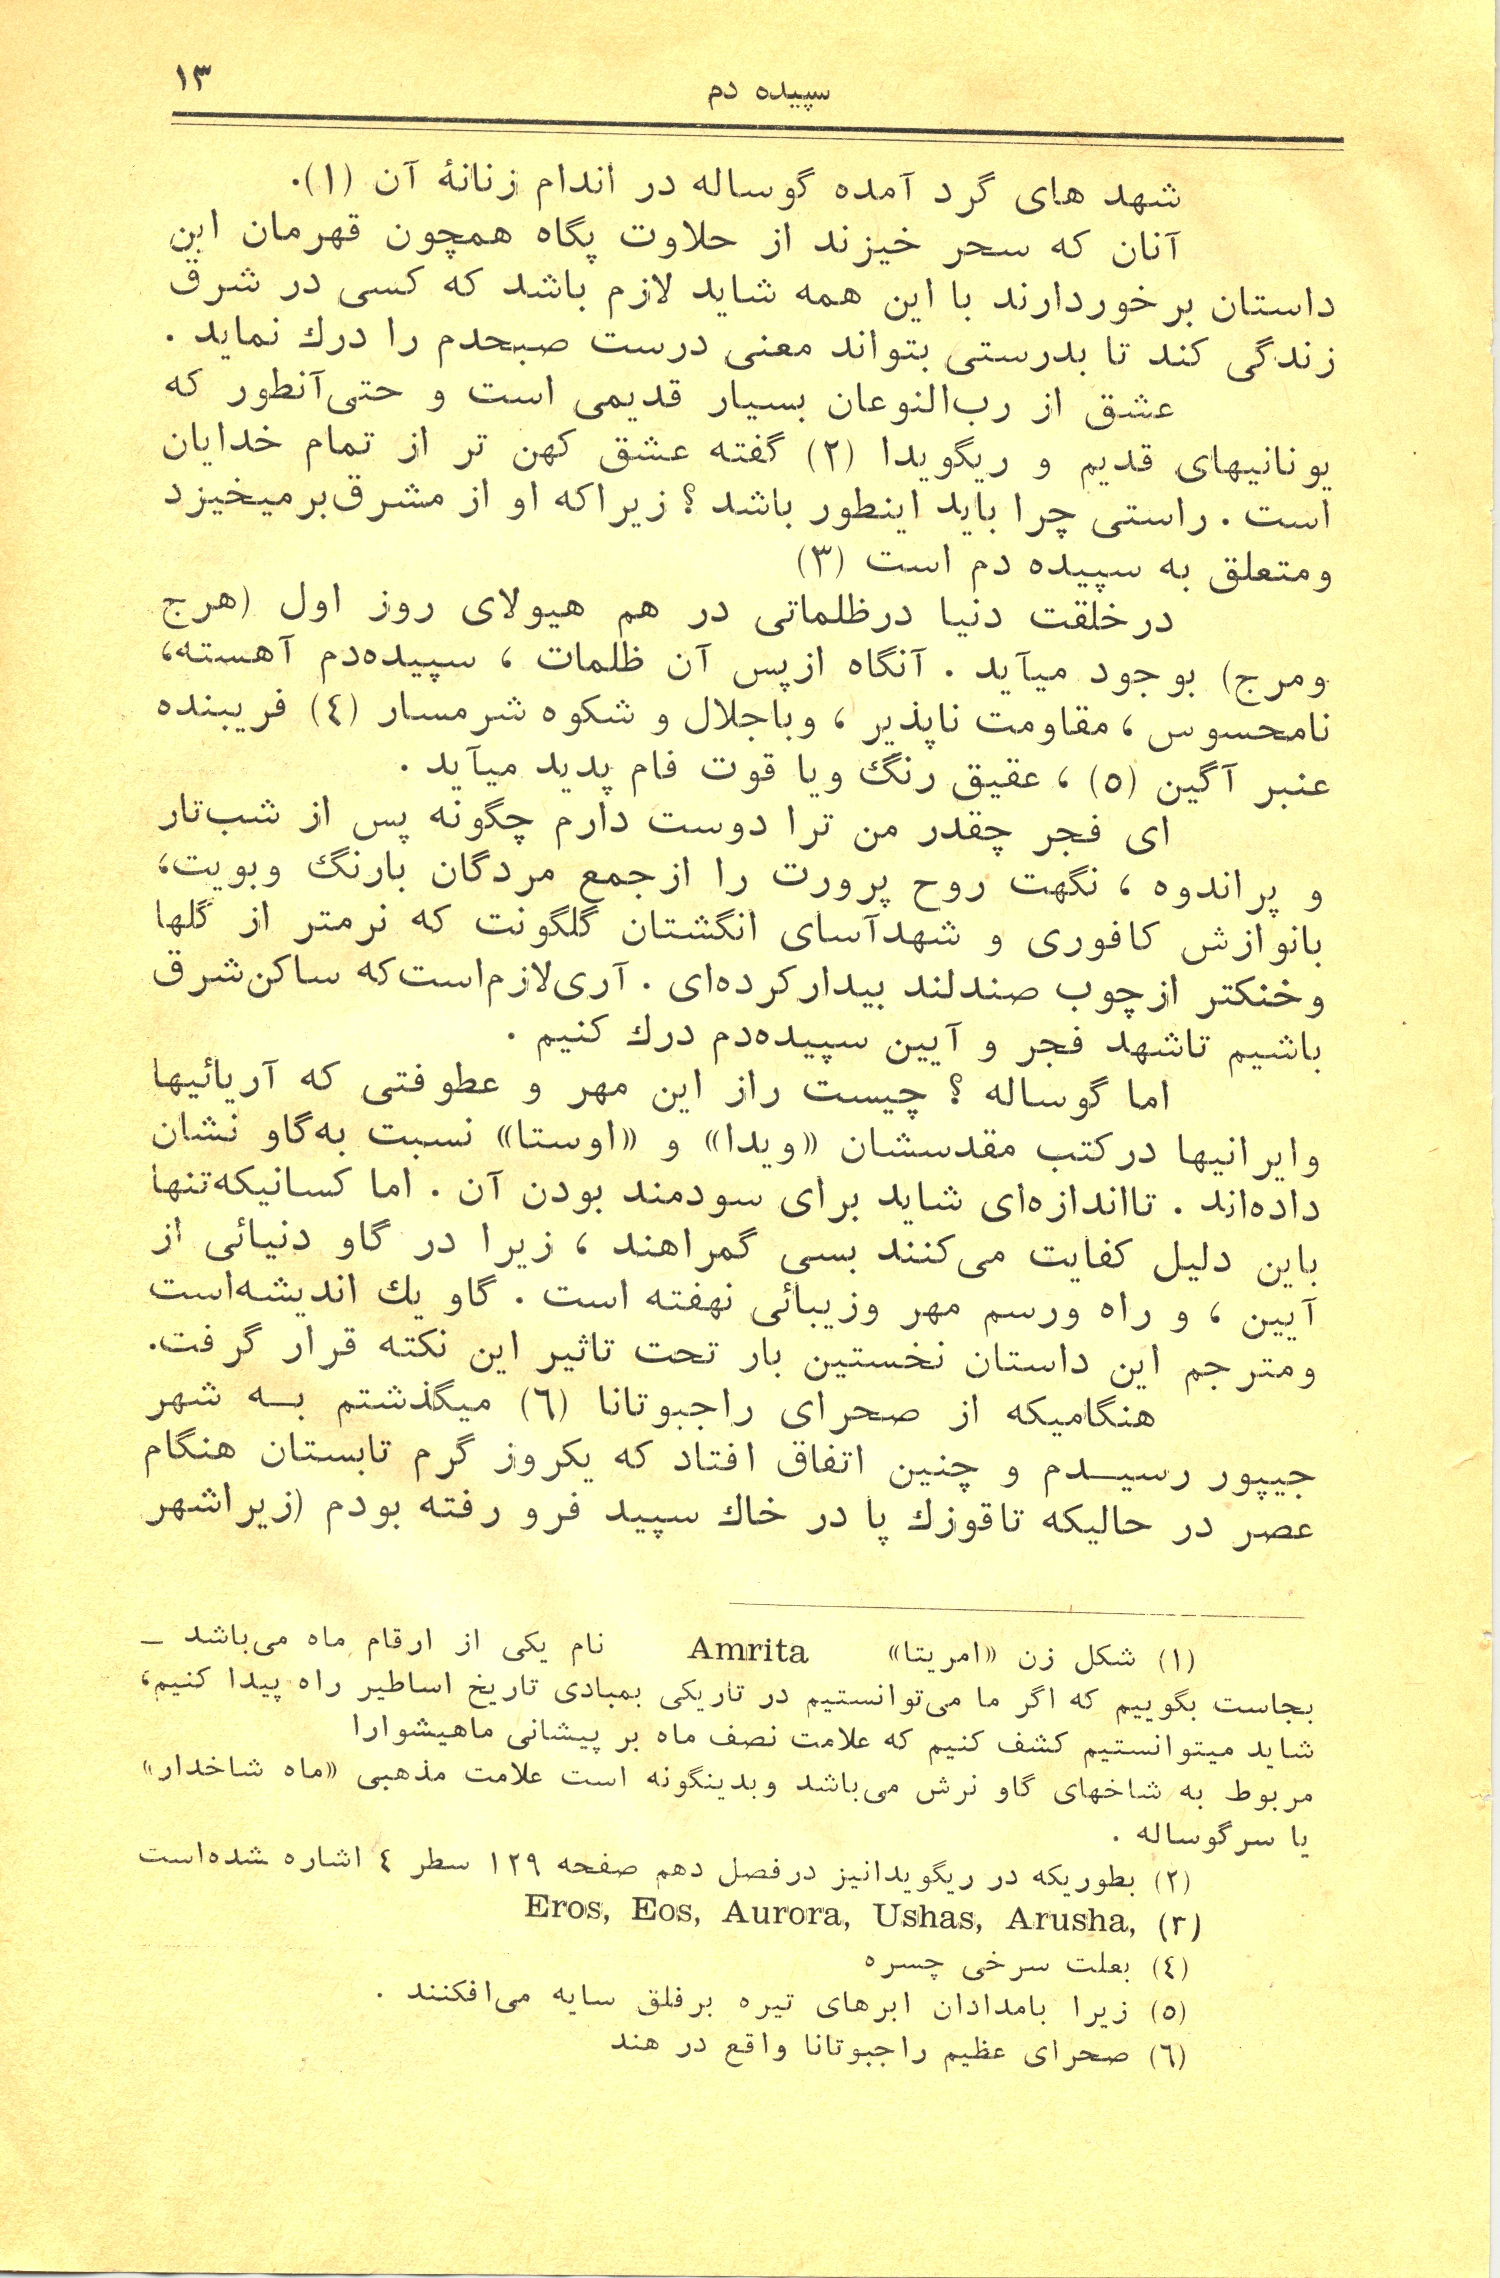 سپیده دم
۱۳
شهد های گرد آمده گوساله در اندام زنانهٔ آن (۱).
آنان که سحر خیزند از حلاوت پگاه همچون قهرمان این
داستان برخوردارند با این همه شاید لازم باشد که کسی در شرق
زندگی کند تا بدرستی بتواند معنی درست صبحدم را درك نماید .
عشق از رب‌النوعان بسیار قدیمی است و حتی‌آنطور که
یونانیهای قدیم و ریگویدا (۲) گفته عشق کهن تر از تمام خدایان
است . راستی چرا باید اینطور باشد ؟ زیراکه او از مشرق‌برمیخیزد
ومتعلق به سپیده دم است (۳)
درخلقت دنیا درظلماتی در هم هیولای روز اول (هرج
ومرج) بوجود میآید . آنگاه ازپس آن ظلمات ، سپیده‌دم آهسته،
نامحسوس ، مقاومت ناپذیر ، وباجلال و شکوه شرمسار (٤) فریبنده
عنبر آگین (٥) ، عقیق رنگ ویا قوت فام پدید میآید .
ای فجر چقدر من ترا دوست دارم چگونه پس از شب‌تار
و پراندوه ، نگهت روح پرورت را ازجمع مردگان بارنگ وبویت،
بانوازش کافوری و شهدآسای انگشتان گلگونت که نرمتر از گلها
وخنکتر ازچوب صندلند بیدارکرده‌ای . آری‌لازم‌است‌که ساکن‌شرق
باشیم تاشهد فجر و آیین سپیده‌دم درك کنیم .
اما گوساله ؟ چیست راز این مهر و عطوفتی که آریائیها
وایرانیها درکتب مقدسشان «ویدا» و «اوستا» نسبت به‌گاو نشان
داده‌اند . تااندازه‌ای شاید برای سودمند بودن آن . اما کسانیکه‌تنها
باین دلیل کفایت می‌کنند بسی گمراهند ، زیرا در گاو دنیائی از
آیین ، و راه ورسم مهر وزیبائی نهفته است . گاو یك اندیشه‌است
ومترجم این داستان نخستین بار تحت تاثیر این نکته قرار گرفت.
هنگامیکه از صحرای راجبوتانا (٦) میگذشتم بــه شهر
جیپور رسیــدم و چنین اتفاق افتاد که یکروز گرم تابستان هنگام
عصر در حالیکه تاقوزك پا در خاك سپید فرو رفته بودم (زیراشهر
(۱) شکل زن «امریتا» Amrita نام یکی از ارقام ماه می‌باشد ـ
بجاست بگوییم که اگر ما می‌توانستیم در تاریکی بمبادی تاریخ اساطیر راه پیدا کنیم،
شاید میتوانستیم کشف کنیم که علامت نصف ماه بر پیشانی ماهیشوارا
مربوط به شاخهای گاو نرش می‌باشد وبدینگونه است علامت مذهبی «ماه شاخدار»
یا سرگوساله .
(۲) بطوریکه در ریگویدانیز درفصل دهم صفحه ۱۲۹ سطر ٤ اشاره شده‌است
(۳) Eros, Eos, Aurora, Ushas, Arusha,
(٤) بعلت سرخی چسره
(٥) زیرا بامدادان ابرهای تیره برفلق سایه می‌افکنند .
(٦) صحرای عظیم راجبوتانا واقع در هند